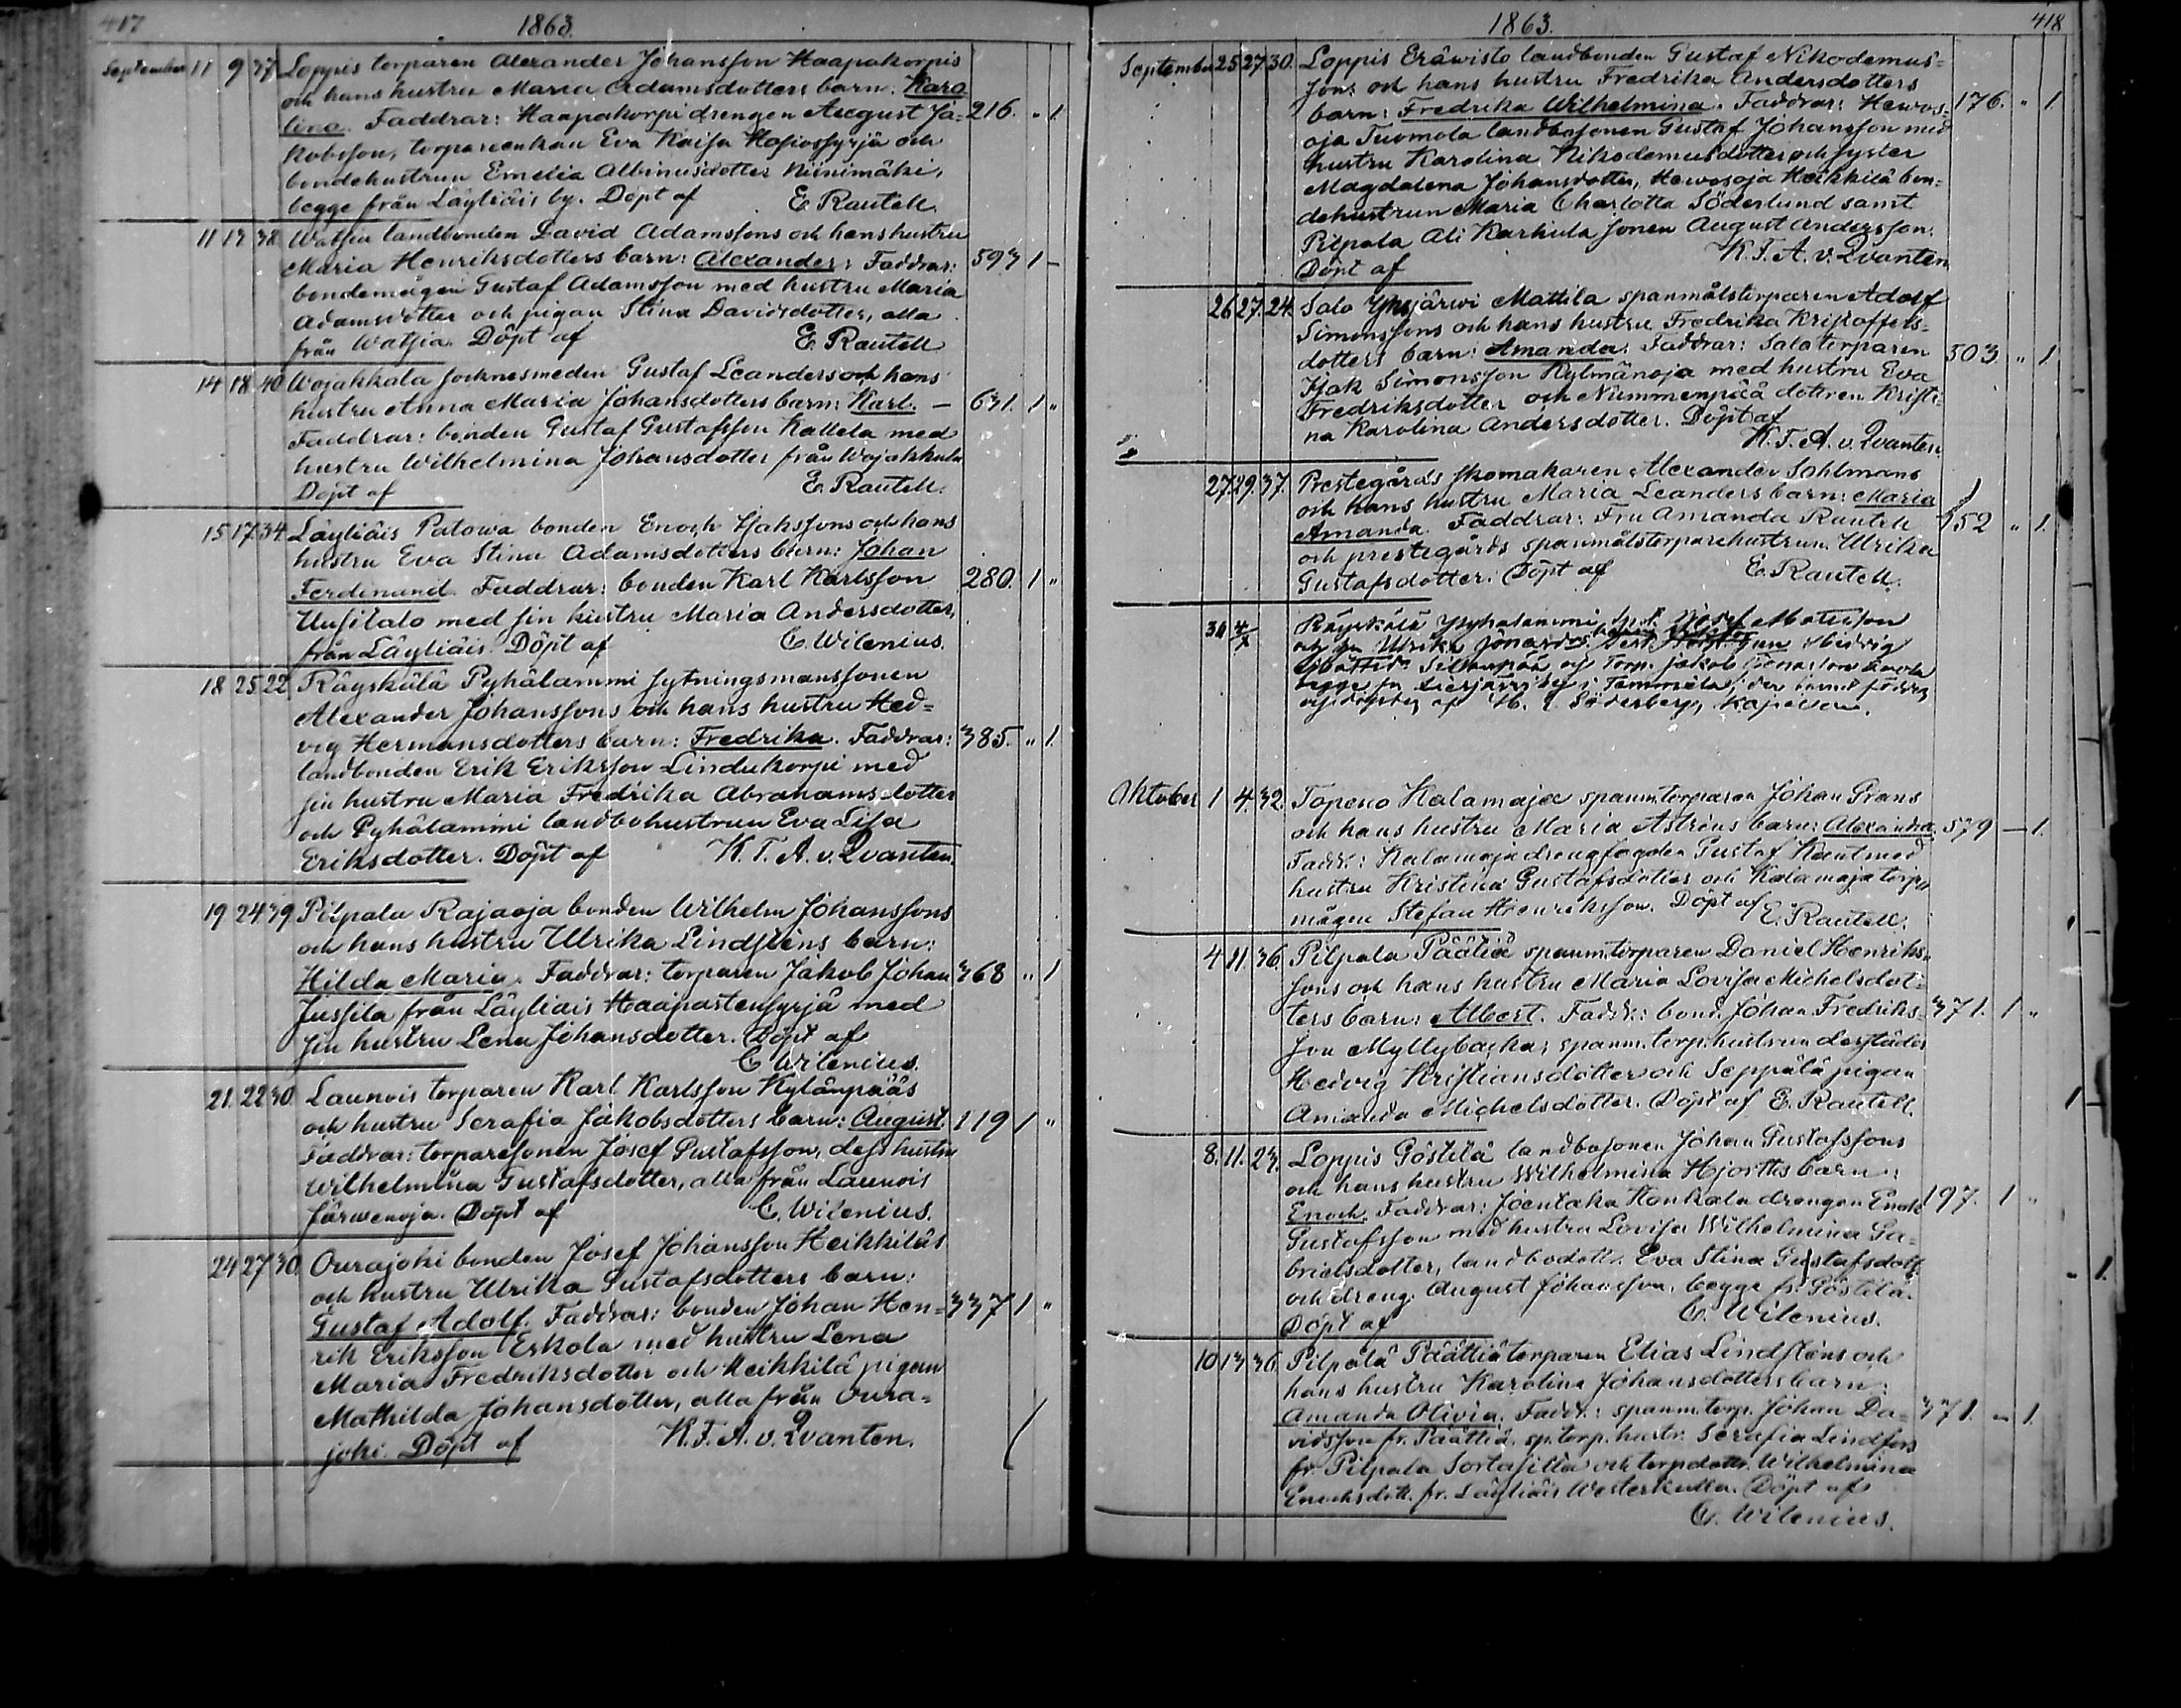 417 1863.
September 11 9 37 Loppis torparen Alexander Johansson Haapakorpis
och hans hustru Maria Adamsdotters barn: Karo
lina. Faddrar: Haapakorpi drengen August Ja= 216. " 1
kobsson, torpareenkan Eva Kaisa Hosiossyrjä och
bondehustrun Emelia Albinusdotter Niinimäki,
begge från Läyliäis by. Döpt af E. Rautell.
11 13 38 Watsia landbonden David Adamssons och hans hustru
Maria Henriksdotters barn: Alexander: Faddrar: 593 1 –
bondemågen Gustaf Adamsson med hustru Maria
Adamsdotter och pigan Stina Davidsdotter, alla
från Watsia. Döpt af E. Rautell
14 18 40 Wojakkala socknesmeden Gustaf Leanders och hans
hustru Anna Maria Johansdotters barn: Karl. – 631. 1 "
Faddrar: bonden Gustaf Gustafsson Kallela med
hustru Wilhelmina Johansdotter från Wojakkala
Döpt af E. Rautell.
15 17 34 Läyliäis Patowa bonden Enoch Isakssons och hans
hustru Eva Stina Adamsdotters barn: Johan
Ferdinand. Faddrar: bonden Karl Karlsson 280. 1 "
Uusitalo med sin hustru Maria Andersdotter,
från Läyliäis. Döpt af C. Wilenius.
18 25 22 Räyskälä Pyhälammi sytningsmanssonen
Alexander Johanssons och hans hustru Hed=
vig Hermansdotters barn: Fredrika. Faddrar: 385. " 1.
landbonden Erik Eriksson Lindukorpi med
sin hustru Maria Fredrika Abrahamsdotter
och Pyhälammi landbohustrun Eva Lisa
Eriksdotter. Döpt af K. F. A. v. Qvanten.
19 24 39 Pilpala Rajaoja bonden Wilhelm Johanssons
och hans hustru Ulrika Lindsténs barn:
Hilda Maria. Faddrar: torparen Jakob Johan 368 " 1
Jussila från Läyliäis Haapastensyrjä med
sin hustru Lena Johansdotter. Döpt af
C. Wilenius.
21. 22 30 Launois torparen Karl Karlsson Kylänpääs
och hustru Serafia Jakobsdotters barn: August. 119 1 "
Faddrar: torparesonen Josef Gustafsson, dess hustru
Wilhelmina Gustafsdotter, alla från Launois
Järwenoja. Döpt af C. Wilenius.
24 27 30. Ourajoki bonden Josef Johansson Heikkiläs
och hustru Ulrika Gustafsdotters barn:
Gustaf Adolf. Faddrar: bonden Johan Hen= 337 1 "
rik Eriksson Erkola med hustru Lena
Maria Fredriksdotter och Heikkilä pigan
Mathilda Johansdotter, alla från Oura=
joki. Döpt af K. F. A. v. Qvanten.
1863. 418
September 25 27 30. Loppis Eräwisto landbonden Gustaf Nikodemus=
sons och hans hustru Fredrika Andersdotters
barn: Fredrika Wilhelmina. Faddrar: Hewos= 176. " 1
oja Tuomola landbosonen Gustaf Johansson med
hustru Karolina Nikodemusdotter och syster
Magdalena Johansdotter, Hewosoja Heikkilä bon=
dehustrun Maria Charlotta Söderlund samt
Pilpala Ali Karkula sonen August Andersson.
Döpt af K. F. A. v. Qvanten
26 27. 24. Salo Yksjärwi Mattila spanmålstorparen Adolf
Simonssons och hans hustru Fredrika Kristoffers=
dotters barn: Amanda. Faddrar: Salo torparen 503 " 1
Isak Simonsson Kylmänoja med hustru Eva
Fredriksdotter och Nummenpää dottren Kristi=
na Karolina Andersdotter. Döpt af
K. F. A. v. Qvanten.
27. 29. 37. Prestegårds skomakaren Alexander Sohlmans
och hans hustru Maria Leanders barn: Maria
Amanda. Faddrar: Fru Amanda Rautell 152 " 1.
och prestegårds spanmålstorparehustrun Ulrika
Gustafsdotter. Döpt af E. Rautell.
30 4/X Räyskälä Pyhälammi Josef Matsson
Ulrika Hedvig
och Torp. Jakob
begge fr i Tammela
af H. Söderberg, Kapellan.
Oktober 1 4. 32. Topeno Kalamaja spanm.torparen Johan Grans
och hans hustru Maria Astréns barn: Alexandra. 579 – 1.
Fadd.: Kalamaja drengfogden Gustaf Kant med
hustru Kristina Gustafsdotter och Kalamaja torp.
mågen Stefan Henriksson. Döpt af E. Rautell.
4 11. 36. Pilpala Päätiä spanm.torparen Daniel Henriks=
sons och hans hustru Maria Lovisa Michelsdot=
ters barn: Albert. Fadd.: bond. Johan Fredriks= 371. 1 "
son Myllybacka, spanm. torp.hustrun
Hedvig Kristiansdotter och Seppälä pigan
Amanda Michelsdotter. Döpt af E. Rautell.
8. 11. 23. Loppis Göstilä landbosonen Johan Gustafssons
och hans hustru Wilhelmina Hjorths barn:
Enoch. Faddrar: Joentaka Honkala drengen Enok 197. 1 "
Gustafsson med hustru Lovisa Wilhelmina Ga=
brielsdotter, landbodott. Eva Stina Gustafsdott.
och dreng. August Johansson, begge fr. Göstilä.
Döpt af C. Wilenius.
10 13 36 Pilpala Päättiä torparen Elias Lindsténs och
hans hustru Karolina Johansdotters barn:
Amanda Olivia. Fadd.: spanm.torp. Johan Da= 371. – 1.
vidsson fr. Päättiä, sp. torp. hustr. Serafia Lindfors
fr. Pilpala Sortasilta och torpdottr. Wilhelmina
Enochsdott. fr. Läyliäis Westerkulla. Döpt af
C. Wilenius.